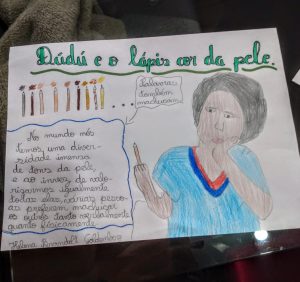 Dúdú e o lápis cor da pele.
Palavras
também
machucam
No mundo nós
temos uma diver-
sidade imensa
de tons da pele,
e ao invés de valo-
rizarmos igualmente
todas elas, várias pesso-
as preferem machucar
os outros tanto verbalmente
quanto fisicamente.
Helena